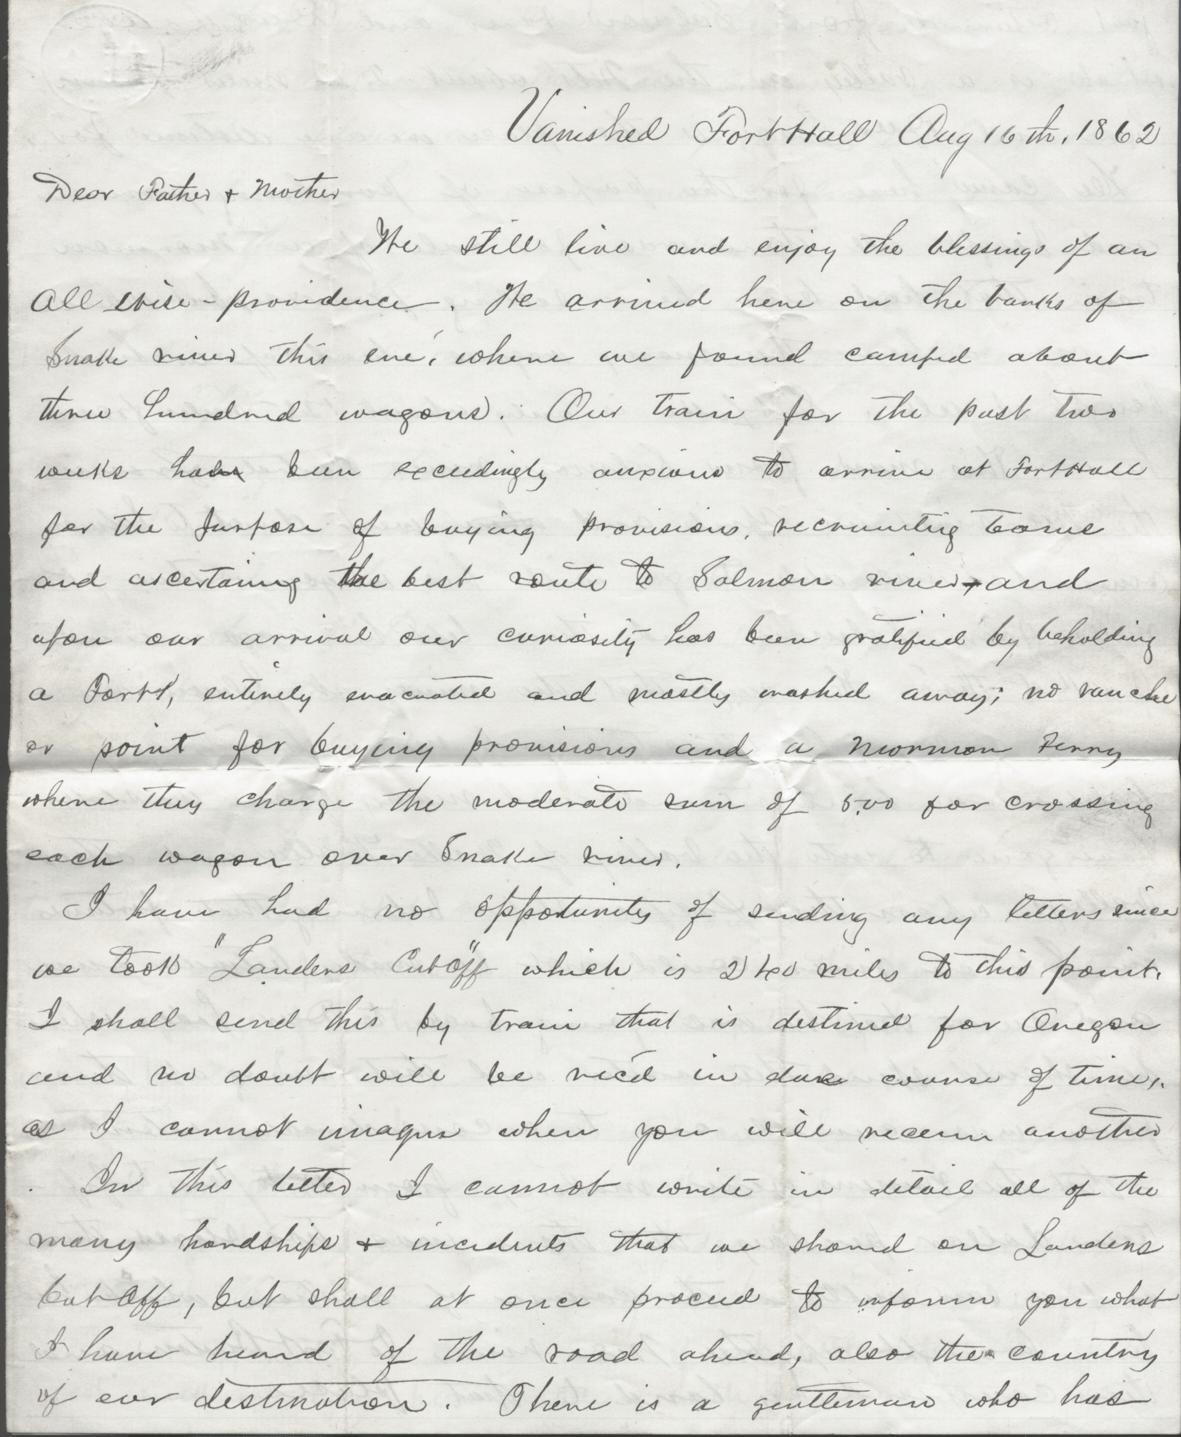 Vanished Fort Hall Aug 16th, 1862
Dear Father & Mother
We still live and enjoy the blessings of an
All wise-providence. We arrived here on the banks of
Snake river this eve', where we found camped about
three hundred wagons. Our train for the past two
weeks have been exceedingly anxious to arrive at Fort Hall
for the purpose of buying provisions, recruiting teams
and ascertaining the best route to Salmon river, and
upon our arrival our curiosity has been gratified by beholding
a Fort, entirely evacuated and mostly washed away; no ranche
or point for buying provisions and a Mormon Ferry
where they charge the moderate sum of 5.00 for crossing
each wagon over Snake river.
I have had no opportunity of sending any letters since
we took "Landers Cut Off" which is 240 miles to this point.
I shall send this by train that is destined for Oregon
and no doubt will be rec'd in due course of time,
as I cannot imagine when you will receive another
. In this letter I cannot write in detail all of the
many hardships & incidents that we shared on Landers
Cut Off, but shall at once proceed to inform you what
I have heard of the road ahead, also the country
of our destination. There is a gentleman who has